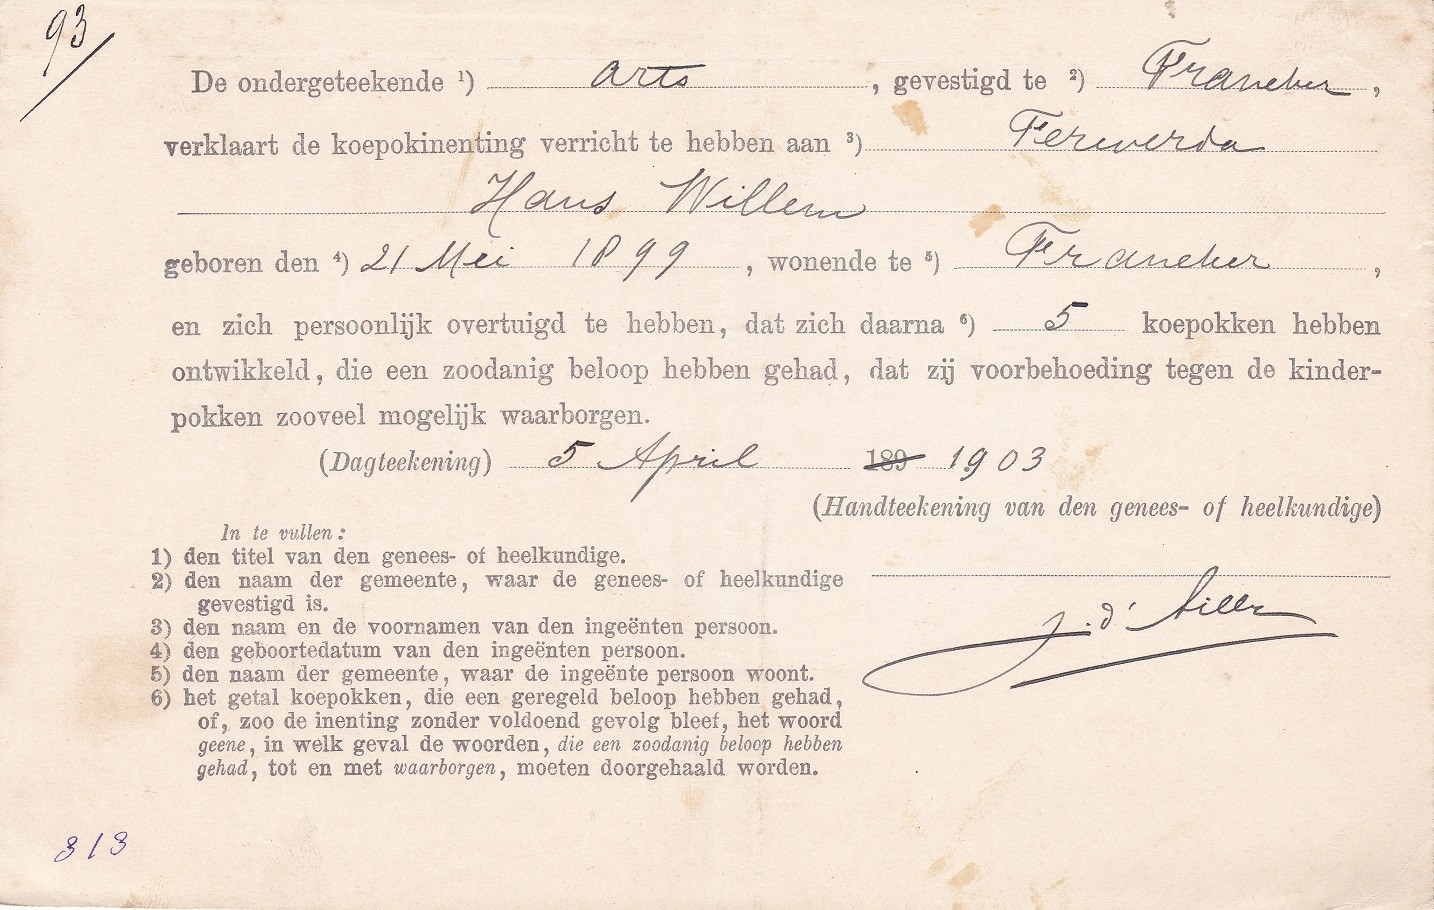 93/
De ondergeteekende ¹) arts, gevestigd te ²) Franeker,
verklaart de koepokinenting verricht te hebben aan ³) Ferwerda
Hans Willem
geboren den ⁴) 21 Mei 1899, wonende te ⁵) Franeker,
en zich persoonlijk overtuigd te hebben, dat zich daarna ⁶) 5 koepokken hebben
ontwikkeld, die een zoodanig beloop hebben gehad, dat zij voorbehoeding tegen de kinder-
pokken zooveel mogelijk waarborgen.
(Dagteekening) 5 April 189 1903
(Handteekening van den genees- of heelkundige)
In te vullen:
1) den titel van den genees- of heelkundige.
2) den naam der gemeente, waar de genees- of heelkundige
gevestigd is.
3) den naam en de voornamen van den ingeënten persoon.
4) den geboortedatum van den ingeënten persoon.
5) den naam der gemeente, waar de ingeënte persoon woont.
6) het getal koepokken, die een geregeld beloop hebben gehad,
of, zoo de inenting zonder voldoend gevolg bleef, het woord
geene, in welk geval de woorden, die een zoodanig beloop hebben
gehad, tot en met waarborgen, moeten doorgehaald worden.
J. d'
313